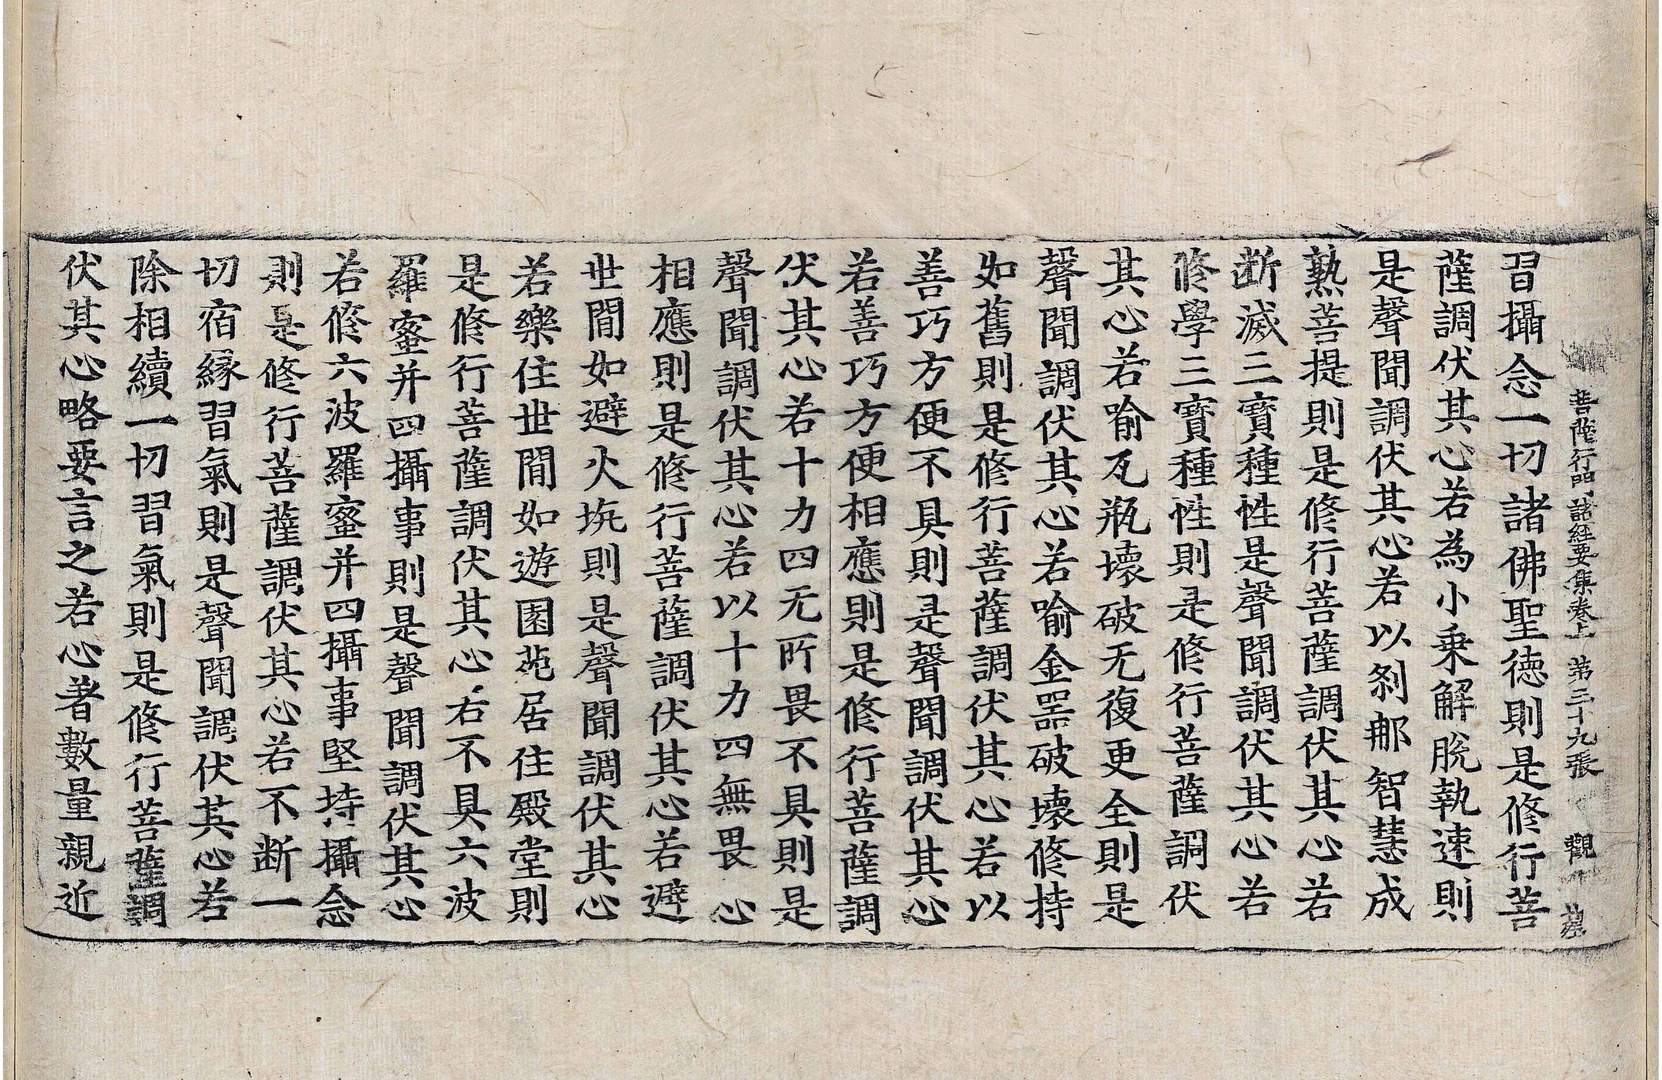 菩薩行門諸經要集卷上 第三十九張 觀
習攝念一切諸佛聖德則是修行菩
薩調伏其心若為小乗解脫執速則
是聲聞調伏其心若以刹那智慧成
熟菩提則是修行菩薩調伏其心若
断滅三寶種性是聲聞調伏其心若
修學三寶種性則是修行菩薩調伏
其心若喻瓦瓶壞破无復更全則是
聲聞調伏其心若喻金器破壞修持
如舊則是修行菩薩調伏其心若以
善巧方便不具則是聲聞調伏其心
若善巧方便相應則是修行菩薩調
伏其心若十力四无所畏不具則是
聲聞調伏其心若以十力四無畏心
相應則是修行菩薩調伏其心若避
世間如避火坑則是聲聞調伏其心
若樂住世間如遊園苑居住殿堂則
是修行菩薩調伏其心若不具六波
羅蜜并四攝事則是聲聞調伏其心
若修六波羅蜜并四攝事堅持攝念
則是修行菩薩調伏其心若不断一
切宿緣習氣則是聲聞調伏其心若
除相續一切習氣則是修行菩薩調
伏其心略要言之若心著數量親近